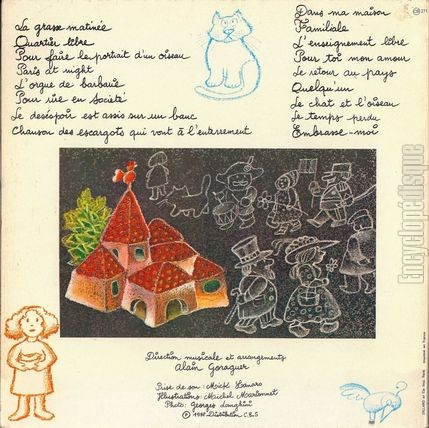 La grasse matinée
Quartier libre
Pour faire le portrait d'un oiseau
Paris at night
L'orgue de barbarie
Pour rire en société
Le désespoir est assis sur un banc
Chanson des escargots qui vont à l'enterrement
Dans ma maison
Familiale
L'enseignement libre
Pour toi mon amour
Le retour au pays
Quelqu'un
Le chat et l'oiseau
Le temps perdu
Embrasse-moi
Direction musicale et arrangements
Alain Goraguer
Prise de son:
Illustrations:
Photo: Georges
Distribution C.B.S
Encyclopédisque